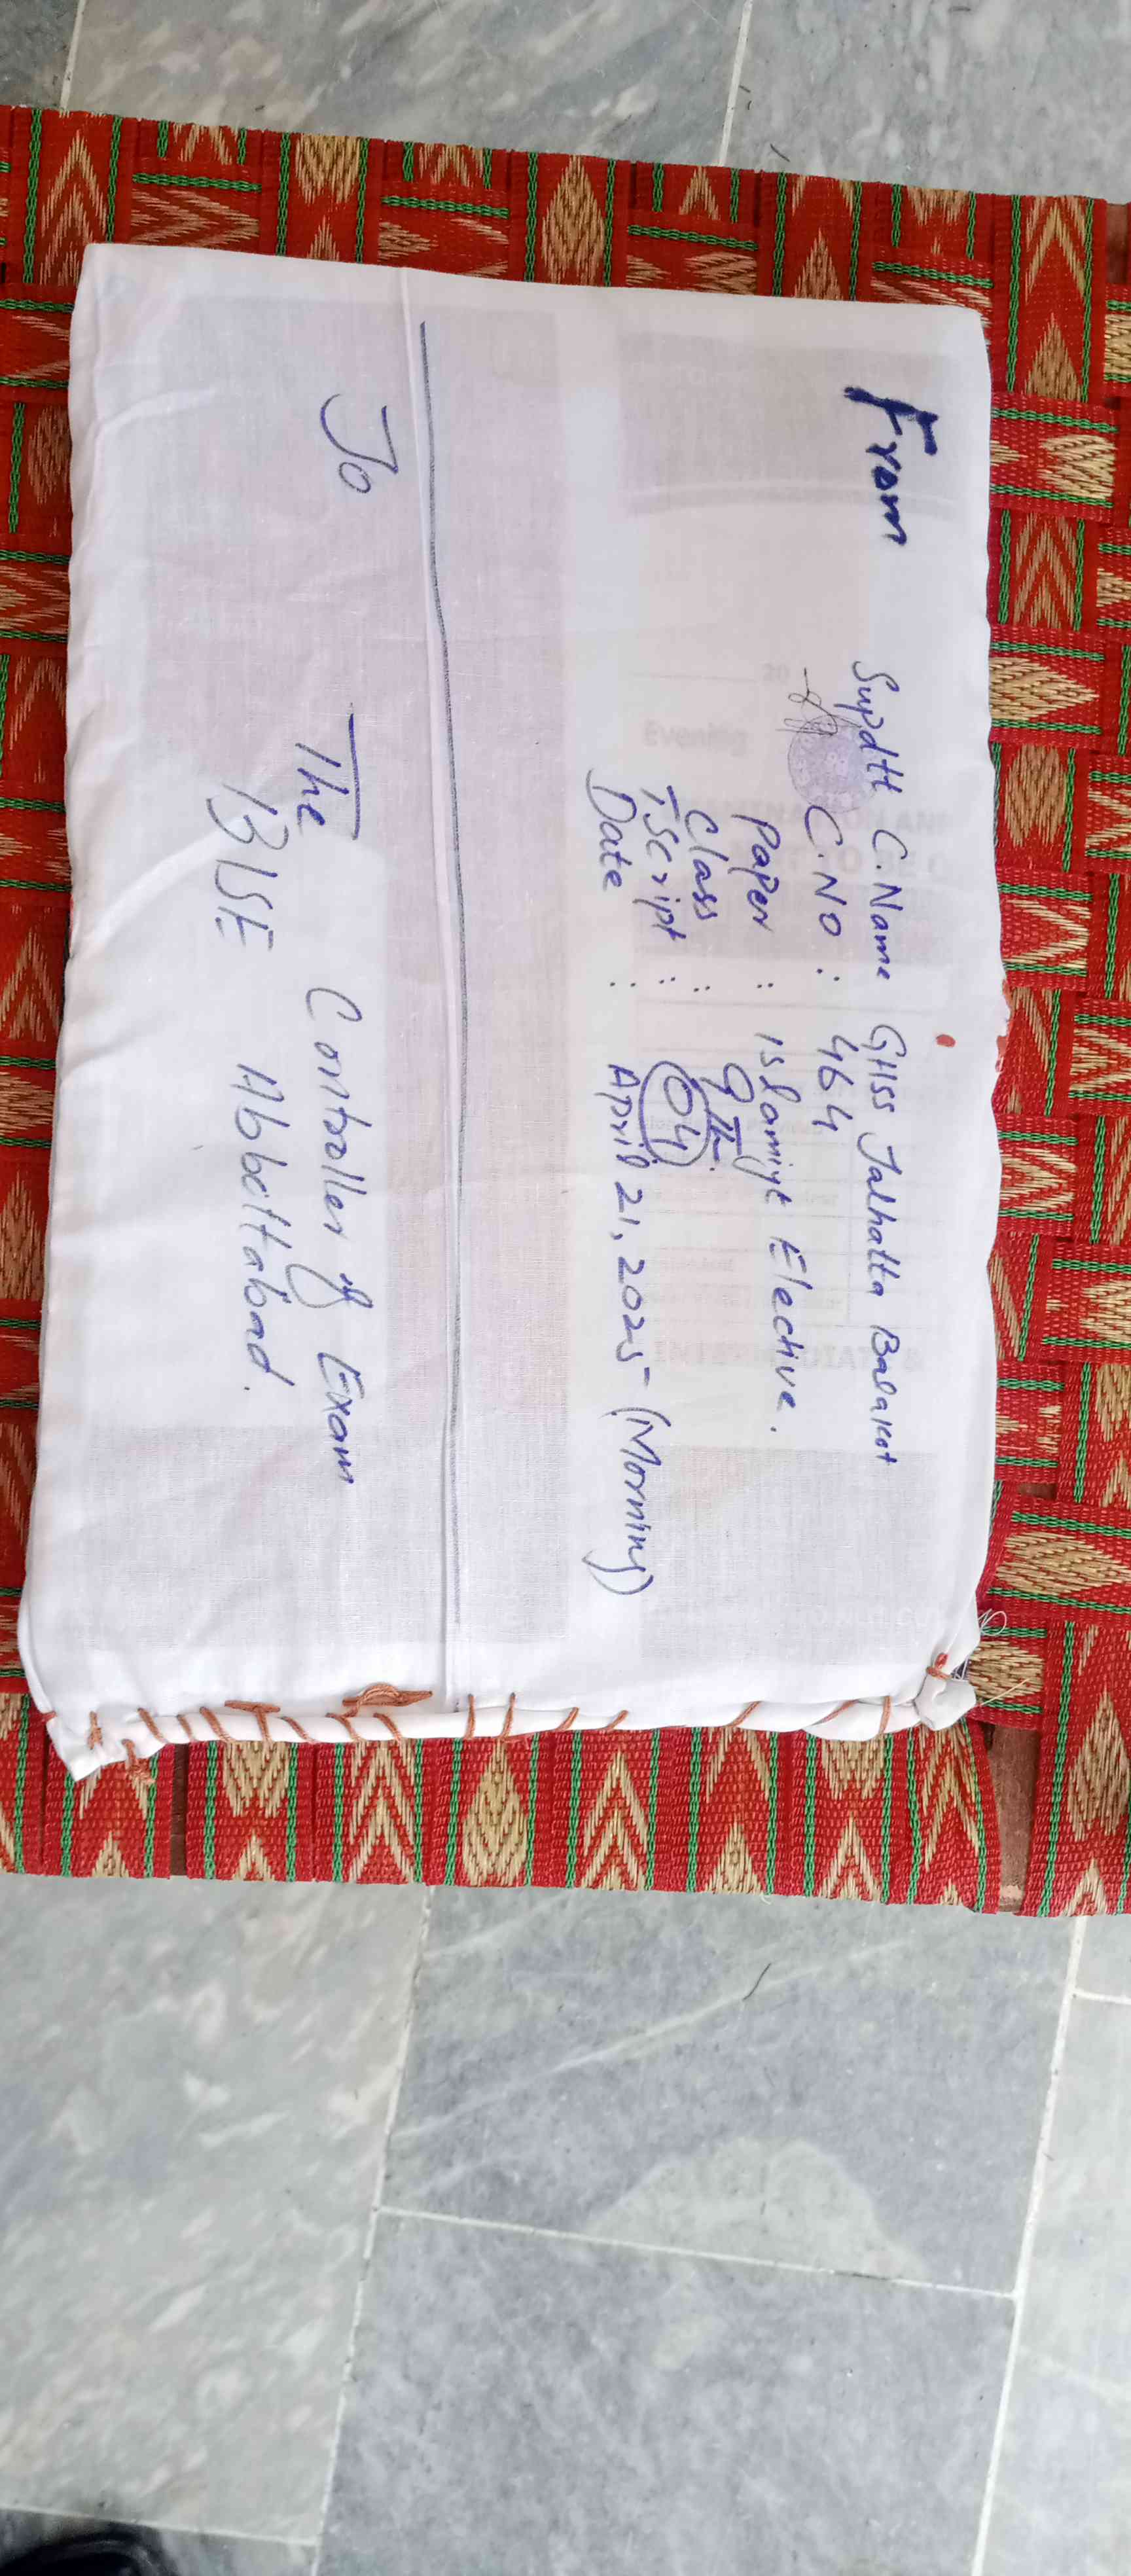 From
Supdtt C.Name GHSS Jalhatta Balakot
C.NO : 464
Paper : islamiyt Elective.
Class : 9th
T.Script : 04
Date : April 21, 2025 (Morning)
To
The Controller of Exam
BISE Abbottabad.
20
Evening